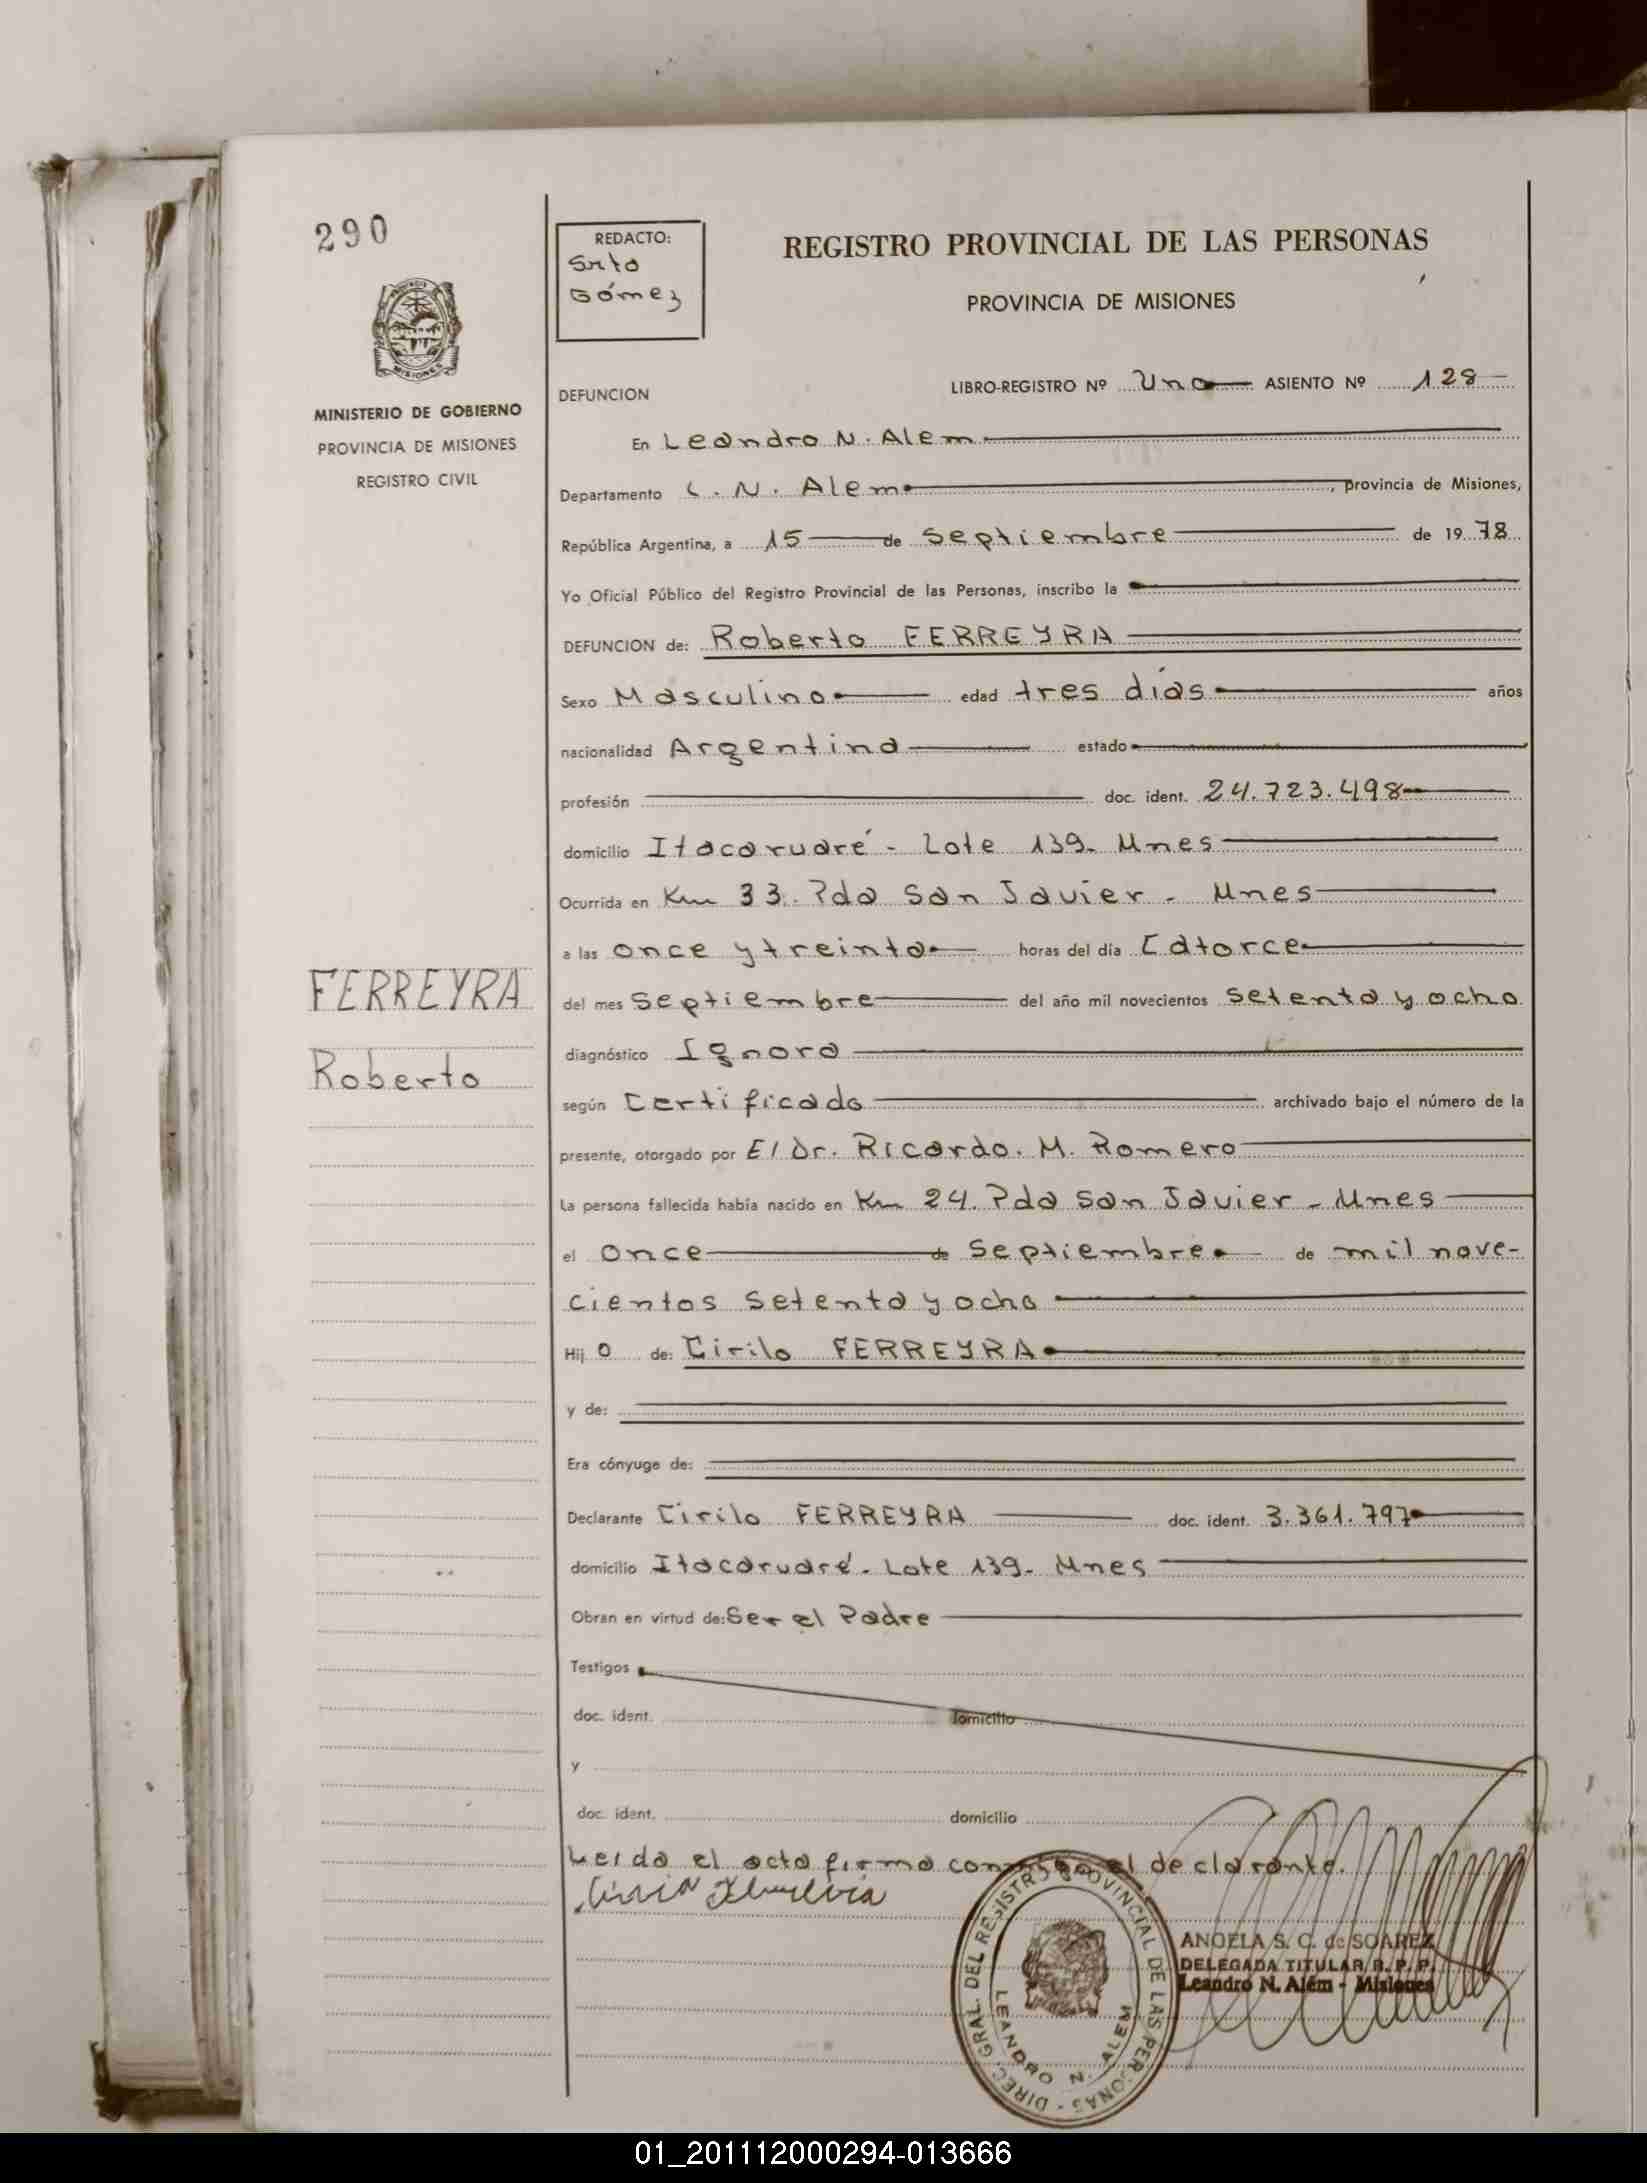 290
REDACTO:
Srta
Gómez
REGISTRO PROVINCIAL DE LAS PERSONAS
PROVINCIA DE MISIONES
PROVINCIA
MISIONES
MINISTERIO DE GOBIERNO
PROVINCIA DE MISIONES
REGISTRO CIVIL
DEFUNCION LIBRO-REGISTRO Nº Uno ASIENTO Nº 128
En Leandro N. Alem
Departamento L. N. Alem, provincia de Misiones,
República Argentina, a 15 de Septiembre de 1978
Yo Oficial Público del Registro Provincial de las Personas, inscribo la
DEFUNCION de: Roberto FERREYRA
Sexo Masculino edad tres días años
nacionalidad Argentina estado
profesión doc. ident. 24.723.498
domicilio Itacaruaré - Lote 139. Mnes
Ocurrida en Km 33. Pda San Javier - Mnes
a las once y treinta horas del día Catorce
del mes Septiembre del año mil novecientos setenta y ocho
diagnóstico Ignora
según Certificado archivado bajo el número de la
presente, otorgado por El Dr. Ricardo. M. Romero
La persona fallecida había nacido en Km 24. Pda San Javier - Mnes
el Once de Septiembre de mil nove-
cientos setenta y ocho
Hijo de: Cirilo FERREYRA
y de:
Era cónyuge de:
Declarante Cirilo FERREYRA doc. ident. 3.361.797
domicilio Itacaruaré - Lote 139. Mnes
Obran en virtud de: Ser el Padre
Testigos
doc. ident. domicilio
y
doc. ident. domicilio
Leida el acta firma conmigo el declarante.
FERREYRA
Roberto
DIREC. GRAL. DEL REGISTRO PROVINCIAL DE LAS PERSONAS
LEANDRO N. ALEM
ANGELA S. C. de SOAREZ
DELEGADA TITULAR R. P. P.
Leandro N. Além - Misiones
01_201112000294-013666